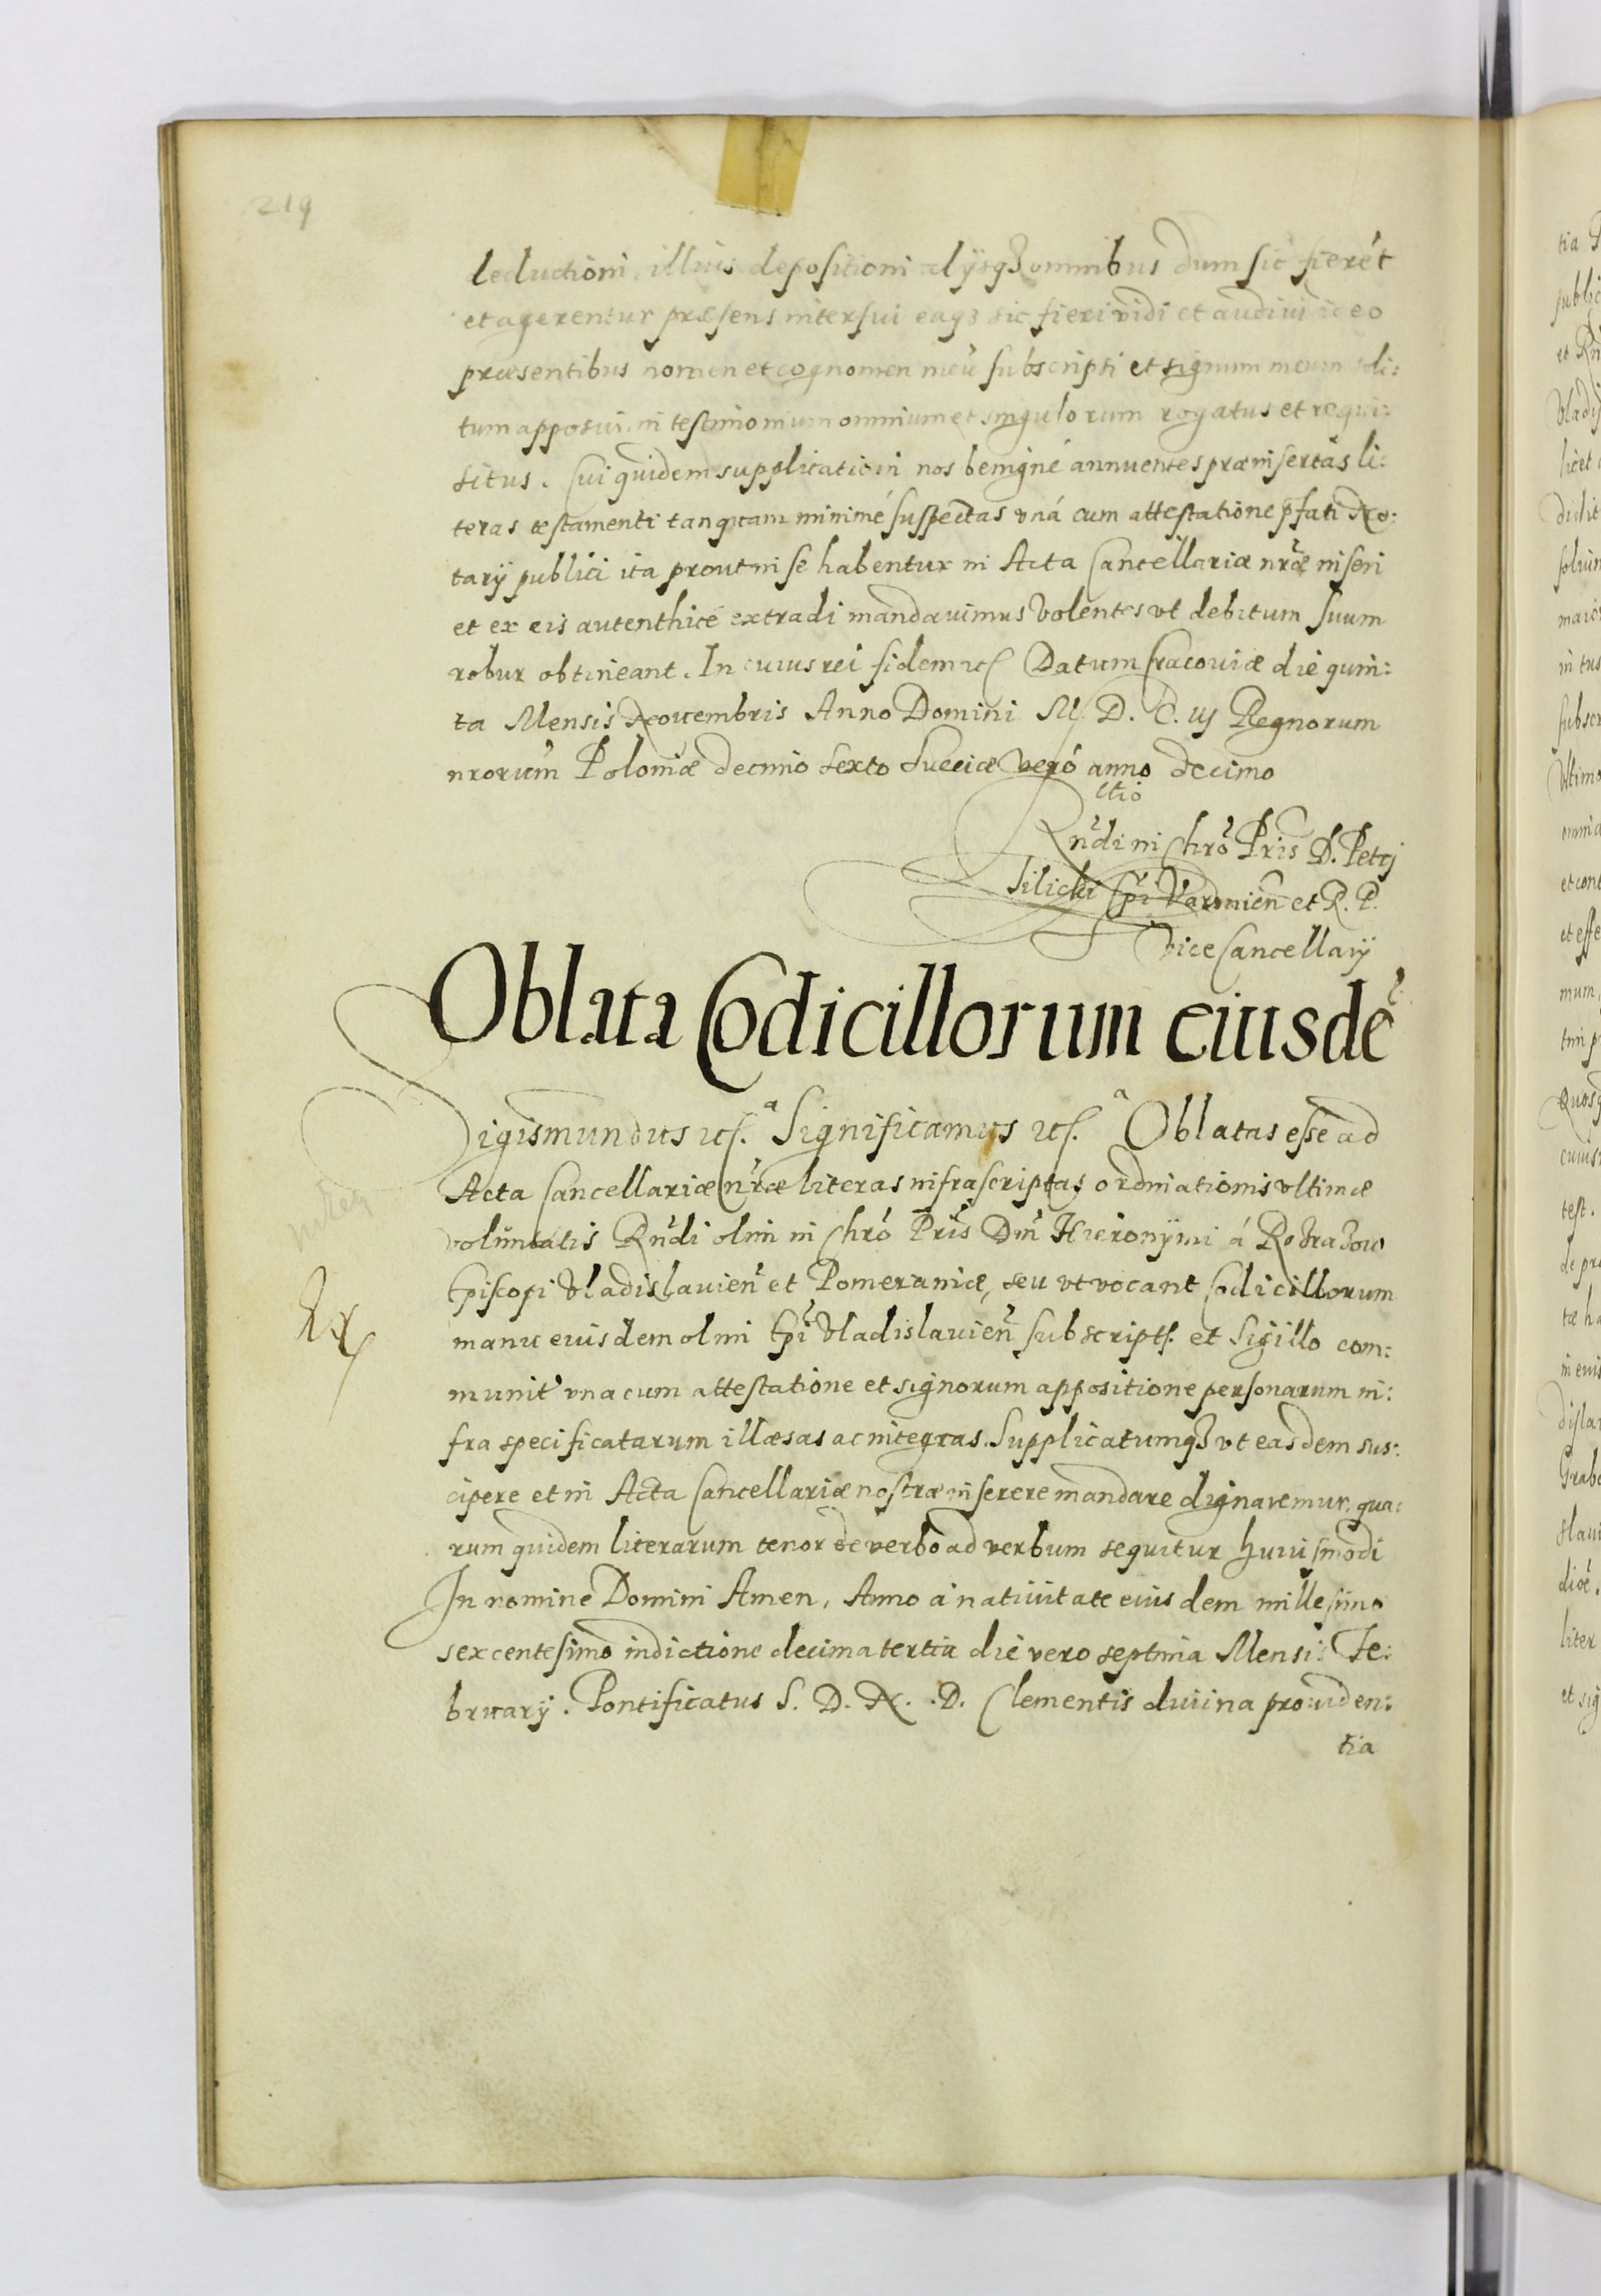 219
leductioni, illius depositioni alijsqꝫ omnibus dum sic fierét
et agerentur præsens interfui eaqꝫ sic fieri vidi et audivi ideo
præsentibus nomen et cognomen meũ subscripsi et signum meum soli:
tum apposui in testimonium omnium et singulorum rogatus et requi:
situs. Cui quidem supplicationi nos benigné annuentes præinsertas li:
teras testamenti tanquam minimé suspectas vná cum attestatione pfati No:
tarij publici ita prout in se habentur in Acta Cancellariæ nrǽ inseri
et ex eis autenthicé extradi mandavimus Volentes vt debitum suum
robur obtineant. In cuius rei fidem etc Datum Cracoviæ die quin:
ta Mensis Novembris Anno Domini M. D. C. iij Regnorum
nrorum Poloniæ decimo sexto Sueciæ veró anno decimo
Rñdi in Chrõ Pris D. Petrj
Tilicki Epi Varmień et R. P.
Vice Cancellarij
Oblata Codicillorum eiusdẽ
Sigismundus etc. Significamus etc. Oblatas esse ad
Acta Cancellariæ nrǽ literas infrascriptas ordinationis vltimæ
voluntatis Rñdi olim in Chrõ Pris Dñi Hieronijmi á Rozrazow
Episcopi Vladislavień et Pomeraniæ, seu vt vocant Codicillorum
manu eiusdem olim Epi Vladislavień subscript. et Sigillo com:
munit vna cum attestatione et signorum appositione personarum in:
fra specificatarum illæsas ac integras. Supplicatumqꝫ vt easdem sus:
cipere et in Acta Cancellariæ nostræ inserere mandare dignaremur, qua:
rum quidem literarum tenor de verbo ad verbum sequitur huiusmodi
In nomine Domini Amen, Anno á nativitate eiusdem millesimo
sexcentesimo indictione decima tertia die vero septima Mensis Fe:
bruarij. Pontificatus S. D. N. D. Clementis divina providen:
tia